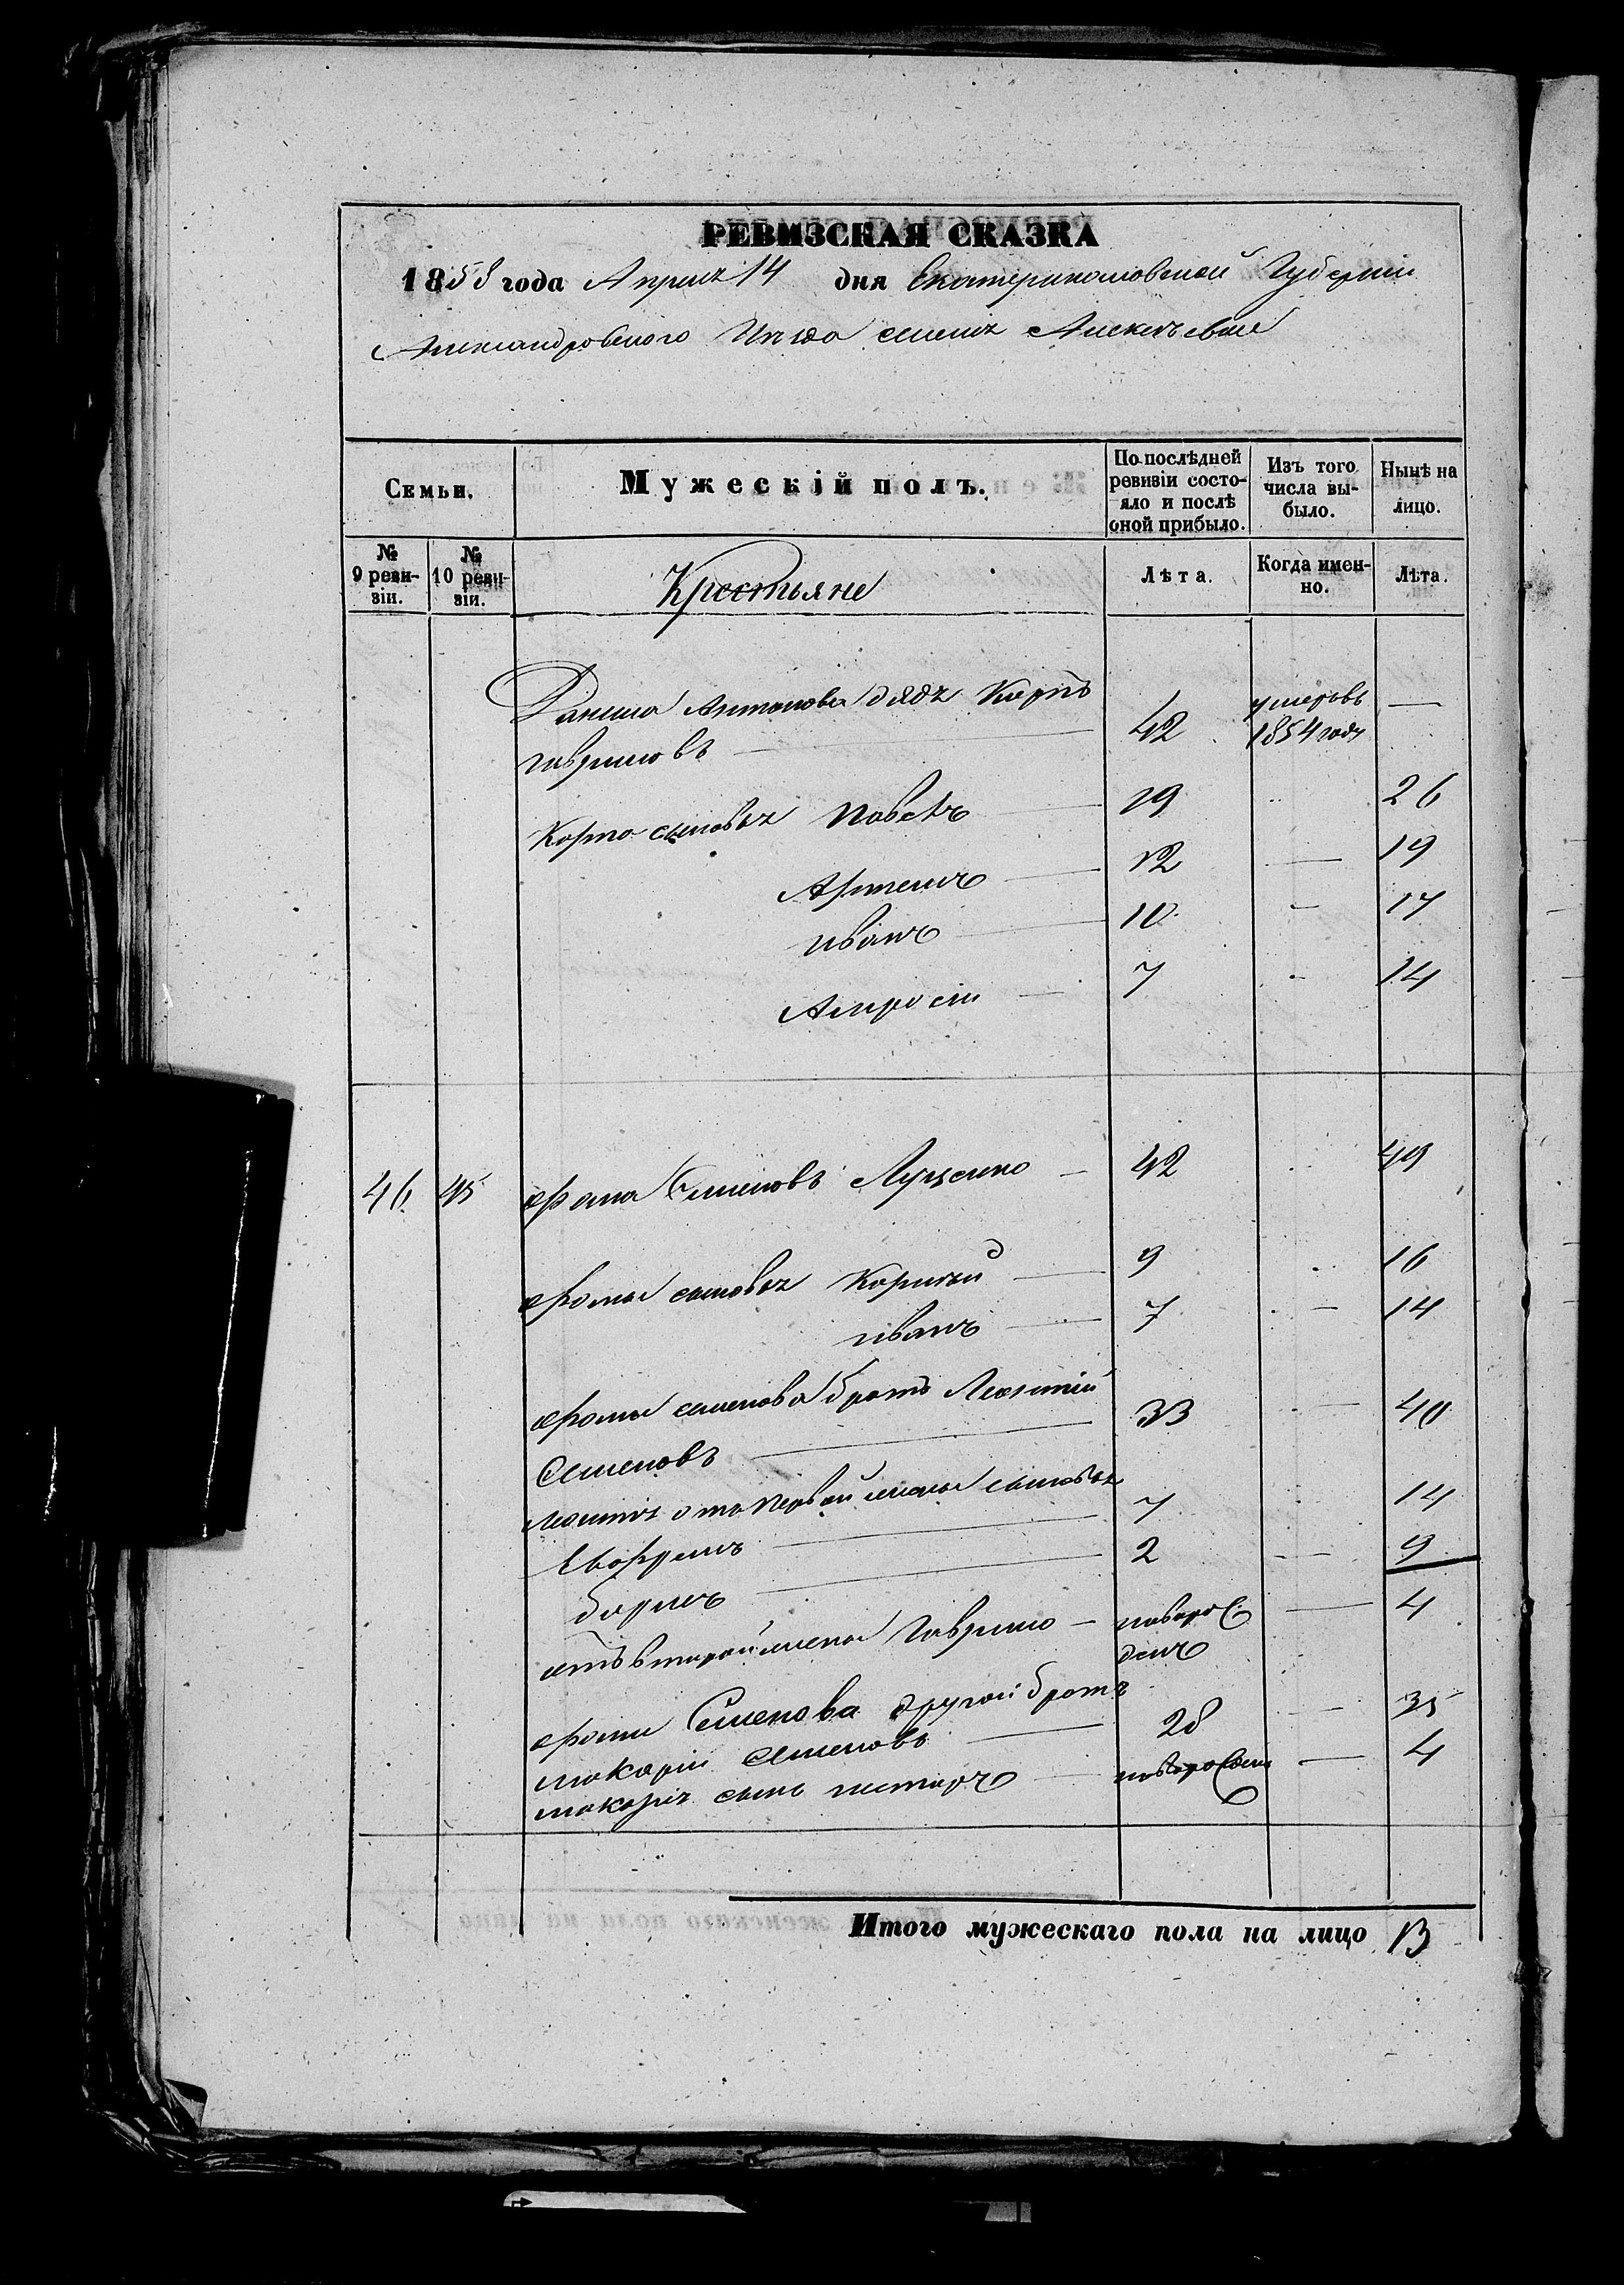 РЕВИЗСКАЯ СКАЗКА
1858 года Апреля 14 дня Екатеринославской Губернии
Александровского Уезда селения Алексеевки
Семьи.
Мужескій полъ.
По послѣдней ревизіи состояло и послѣ оной прибыло.
Изъ того числа выбыло.
Нынѣ на лицо.
№ 9 ревизіи.
№ 10 ревизіи.
Крестьяне
Лѣта.
Когда именно.
Лѣта.
Данила Антонова дядя Карпъ
гавриловъ — 42 умеръ въ 1854 году —
Карпа сыновья Павелъ — 19 26
Артемъ — 12 — 19
иванъ — 10 — 17
Амросiи — 7 - 14
46 45 фома Семеновъ Луценко — 42 49
фомы сыновья Корнѣй — 9 16
иванъ — 7 — 14
фомы семенова братъ Леонтiй
Семеновъ — 33 — 40
леонтiя отъ первой жены сыновья
7 14
2 — 9
отъ второй жены гаврило — новорож
денъ — 4
фомы Семенова другой братъ
макарiй Семеновъ — 28 — 35
макарiя сынъ нестеръ — новорожден — 4
Итого мужескаго пола на лицо 13